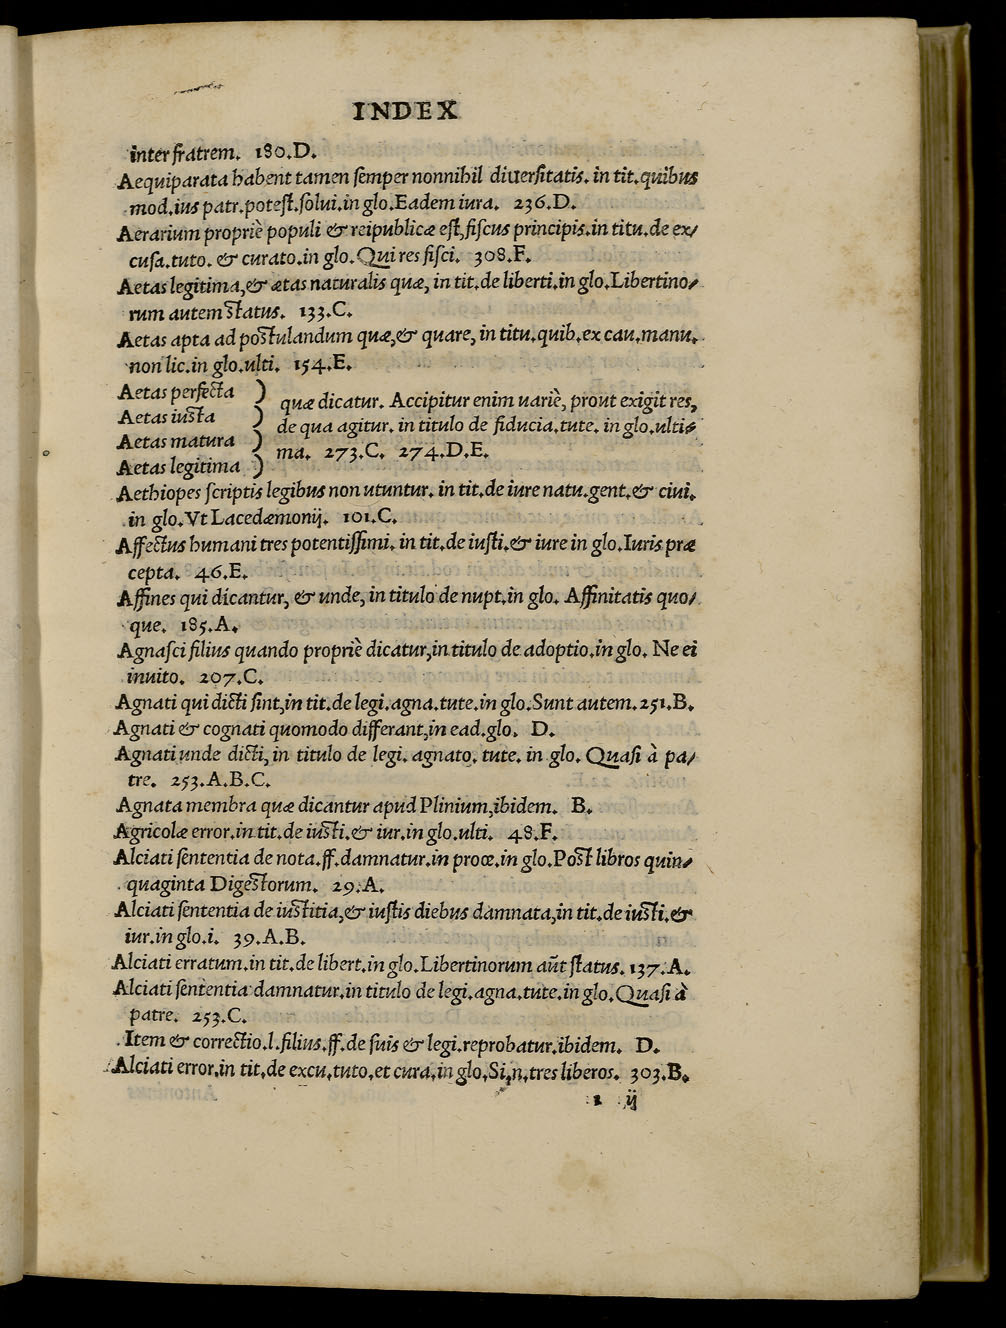 INDEX
inter fratrem. 180.D.
Aequiparata habent tamen ſemper nonnihil diuerſitatis. in tit. quibus
mod. ius patr. poteſt. ſolui. in glo. Eadem iura. 236.D.
Aerarium propriè populi & reipublicæ eſt, fiſcus principis. in titu. de ex/
cuſa. tuto. & curato. in glo. Qui res fiſci. 308.F.
Aetas legitima, & ætas naturalis quæ, in tit. de liberti. in glo. Libertino/
rum autem ſtatus. 133.C.
Aetas apta ad poſtulandum quæ, & quare, in titu. quib. ex cau. manu.
non lic. in glo. ulti. 154.E.
Aetas perfecta )
Aetas iuſta )
Aetas matura )
Aetas legitima )
quæ dicatur. Accipitur enim uariè, prout exigit res,
de qua agitur. in titulo de fiducia. tute. in glo. ulti/
ma. 273.C. 274.D.E.
Aethiopes ſcriptis legibus non utuntur. in tit. de iure natu. gent. & ciui.
in glo. Vt Lacedæmonij. 101.C.
Affectus humani tres potentiſſimi. in tit. de iuſti. & iure in glo. Iuris præ
cepta. 46.E.
Affines qui dicantur, & unde, in titulo de nupt. in glo. Affinitatis quo/
que. 185.A.
Agnaſci filius quando propriè dicatur, in titulo de adoptio. in glo. Ne ei
inuito. 207.C.
Agnati qui dicti ſint, in tit. de legi. agna. tute. in glo. Sunt autem. 251.B.
Agnati & cognati quomodo differant, in ead. glo. D.
Agnati unde dicti, in titulo de legi. agnato. tute. in glo. Quaſi à pa/
tre. 253.A.B.C.
Agnata membra quæ dicantur apud Plinium, ibidem. B.
Agricolæ error. in tit. de iuſti. & iur. in glo. ulti. 48.F.
Alciati ſententia de nota. ff. damnatur. in proœ. in glo. Poſt libros quin/
quaginta Digeſtorum. 29.A.
Alciati ſententia de iuſtitia, & iuſtis diebus damnata, in tit. de iuſti. &
iur. in glo. i. 39.A.B.
Alciati erratum. in tit. de libert. in glo. Libertinorum aūt ſtatus. 137.A.
Alciati ſententia damnatur. in titulo de legi. agna. tute. in glo. Quaſi à
patre. 253.C.
Item & correctio. l. filius. ff. de ſuis & legi. reprobatur. ibidem. D.
Alciati error. in tit. de excu. tuto. et cura. in glo. Si. n. tres liberos. 303.B.
1 ij